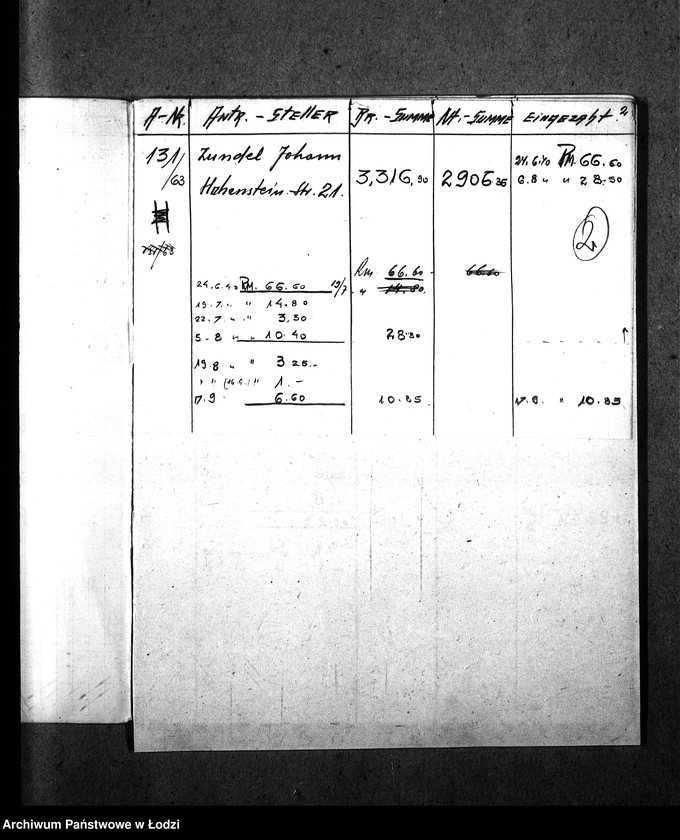 A-Nr. Antr. - Steller Br. - Summe Nt. - Summe Eingezahlt 2
131/63 Zundel Johann 24.6.40 RM. 66.60
Hohenstein-Str. 21. 3,316,90 2906 35 6.8 " " 28.50
2
131/63
Rm 66.60 - 66.60
24.6.40 RM. 66.60 19/7 " 14.80
19.7. " " 14.80
22.7. " " 3,30
5-8 " " 10.40 28.50
19.8 " " 3.25.-
" " " 1.-
17.9 6.60 10.85 17.9. " 10.85
Archiwum Państwowe w Łodzi